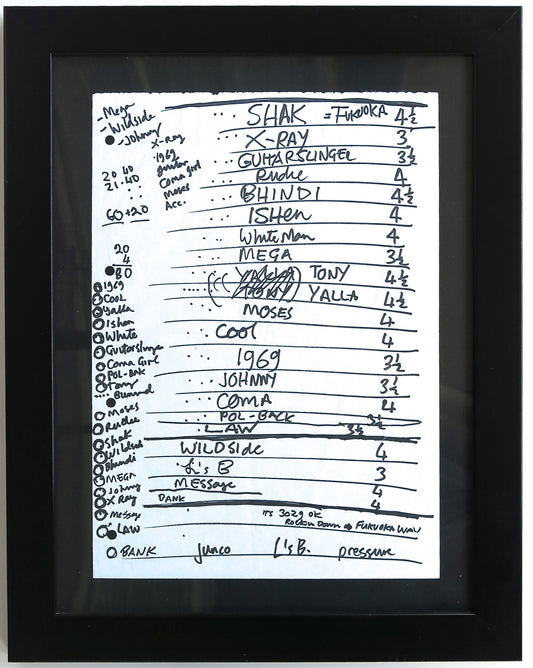 - Mega
- Wildside
- Johnny
X-Ray
1969
Guitar
Coma girl
Moses
Acc.
20 40
21.40
60+20
20
4
80
1969
Cool
Yalla
Ishen
White
Guitarslinger
Coma Girl
POL-BAK
Tony
Moses
Rudie
Shak
Wildside
Bhindi
MEGA
Johnny
X Ray
Message
LAW
BANK
... SHAK = FUKUOKA 4½
... X-RAY 3
... GUITARSLINGER 3½
... Rudie 4
... BHINDI 4½
... IShen 4
... White Man 4
... MEGA 3½
YALLA TONY 4½
TONY YALLA 4½
... MOSES 4
... Cool 4
... 1969 3½
... JOHNNY 3½
... COMA 4
... POL-BACK 3½
... LAW 3½
WILDSIDE 4
L's B 3
MESSAGE 4
DANK 4
ITS 3029 OK
Rockin Down → FUKUOKA
Junco L's B. pressure